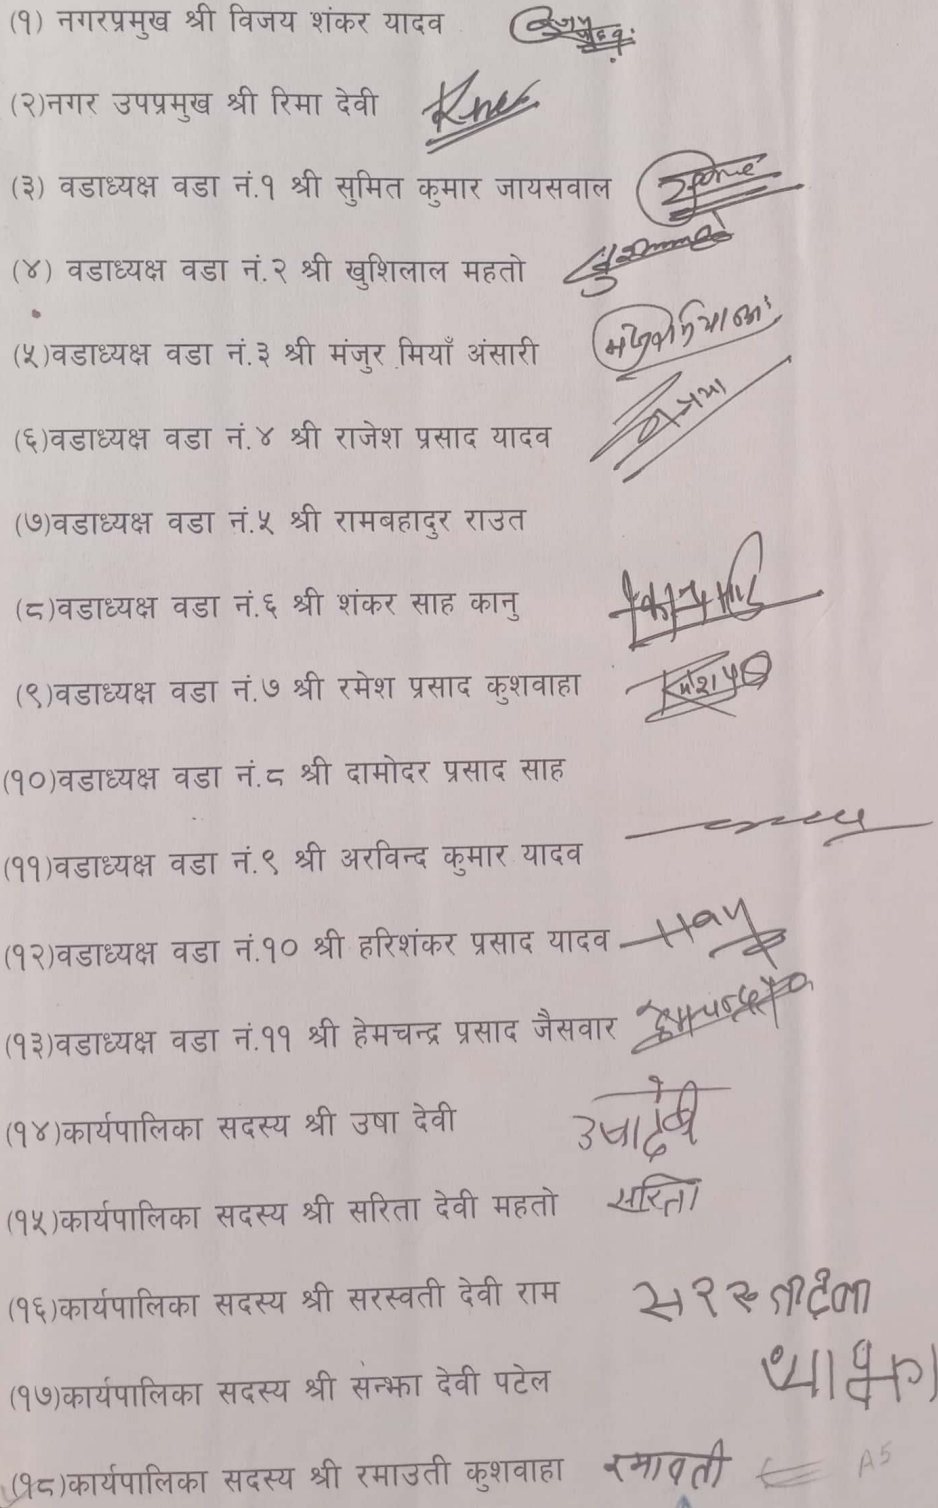 (१) नगरप्रमुख श्री विजय शंकर यादव
(२)नगर उपप्रमुख श्री रिमा देवी
(३) वडाध्यक्ष वडा नं.१ श्री सुमित कुमार जायसवाल
(४) वडाध्यक्ष वडा नं.२ श्री खुशिलाल महतो
(५)वडाध्यक्ष वडा नं.३ श्री मंजुर मियाँ अंसारी
(६)वडाध्यक्ष वडा नं.४ श्री राजेश प्रसाद यादव
(७)वडाध्यक्ष वडा नं.५ श्री रामबहादुर राउत
(८)वडाध्यक्ष वडा नं.६ श्री शंकर साह कानु
(९)वडाध्यक्ष वडा नं.७ श्री रमेश प्रसाद कुशवाहा
(१०)वडाध्यक्ष वडा नं.८ श्री दामोदर प्रसाद साह
(११)वडाध्यक्ष वडा नं.९ श्री अरविन्द कुमार यादव
(१२)वडाध्यक्ष वडा नं.१० श्री हरिशंकर प्रसाद यादव
(१३)वडाध्यक्ष वडा नं.११ श्री हेमचन्द्र प्रसाद जैसवार
(१४)कार्यपालिका सदस्य श्री उषा देवी
(१५)कार्यपालिका सदस्य श्री सरिता देवी महतो सरिता
(१६)कार्यपालिका सदस्य श्री सरस्वती देवी राम
(१७)कार्यपालिका सदस्य श्री सन्झा देवी पटेल
(१८)कार्यपालिका सदस्य श्री रमाउती कुशवाहा रमावती A5